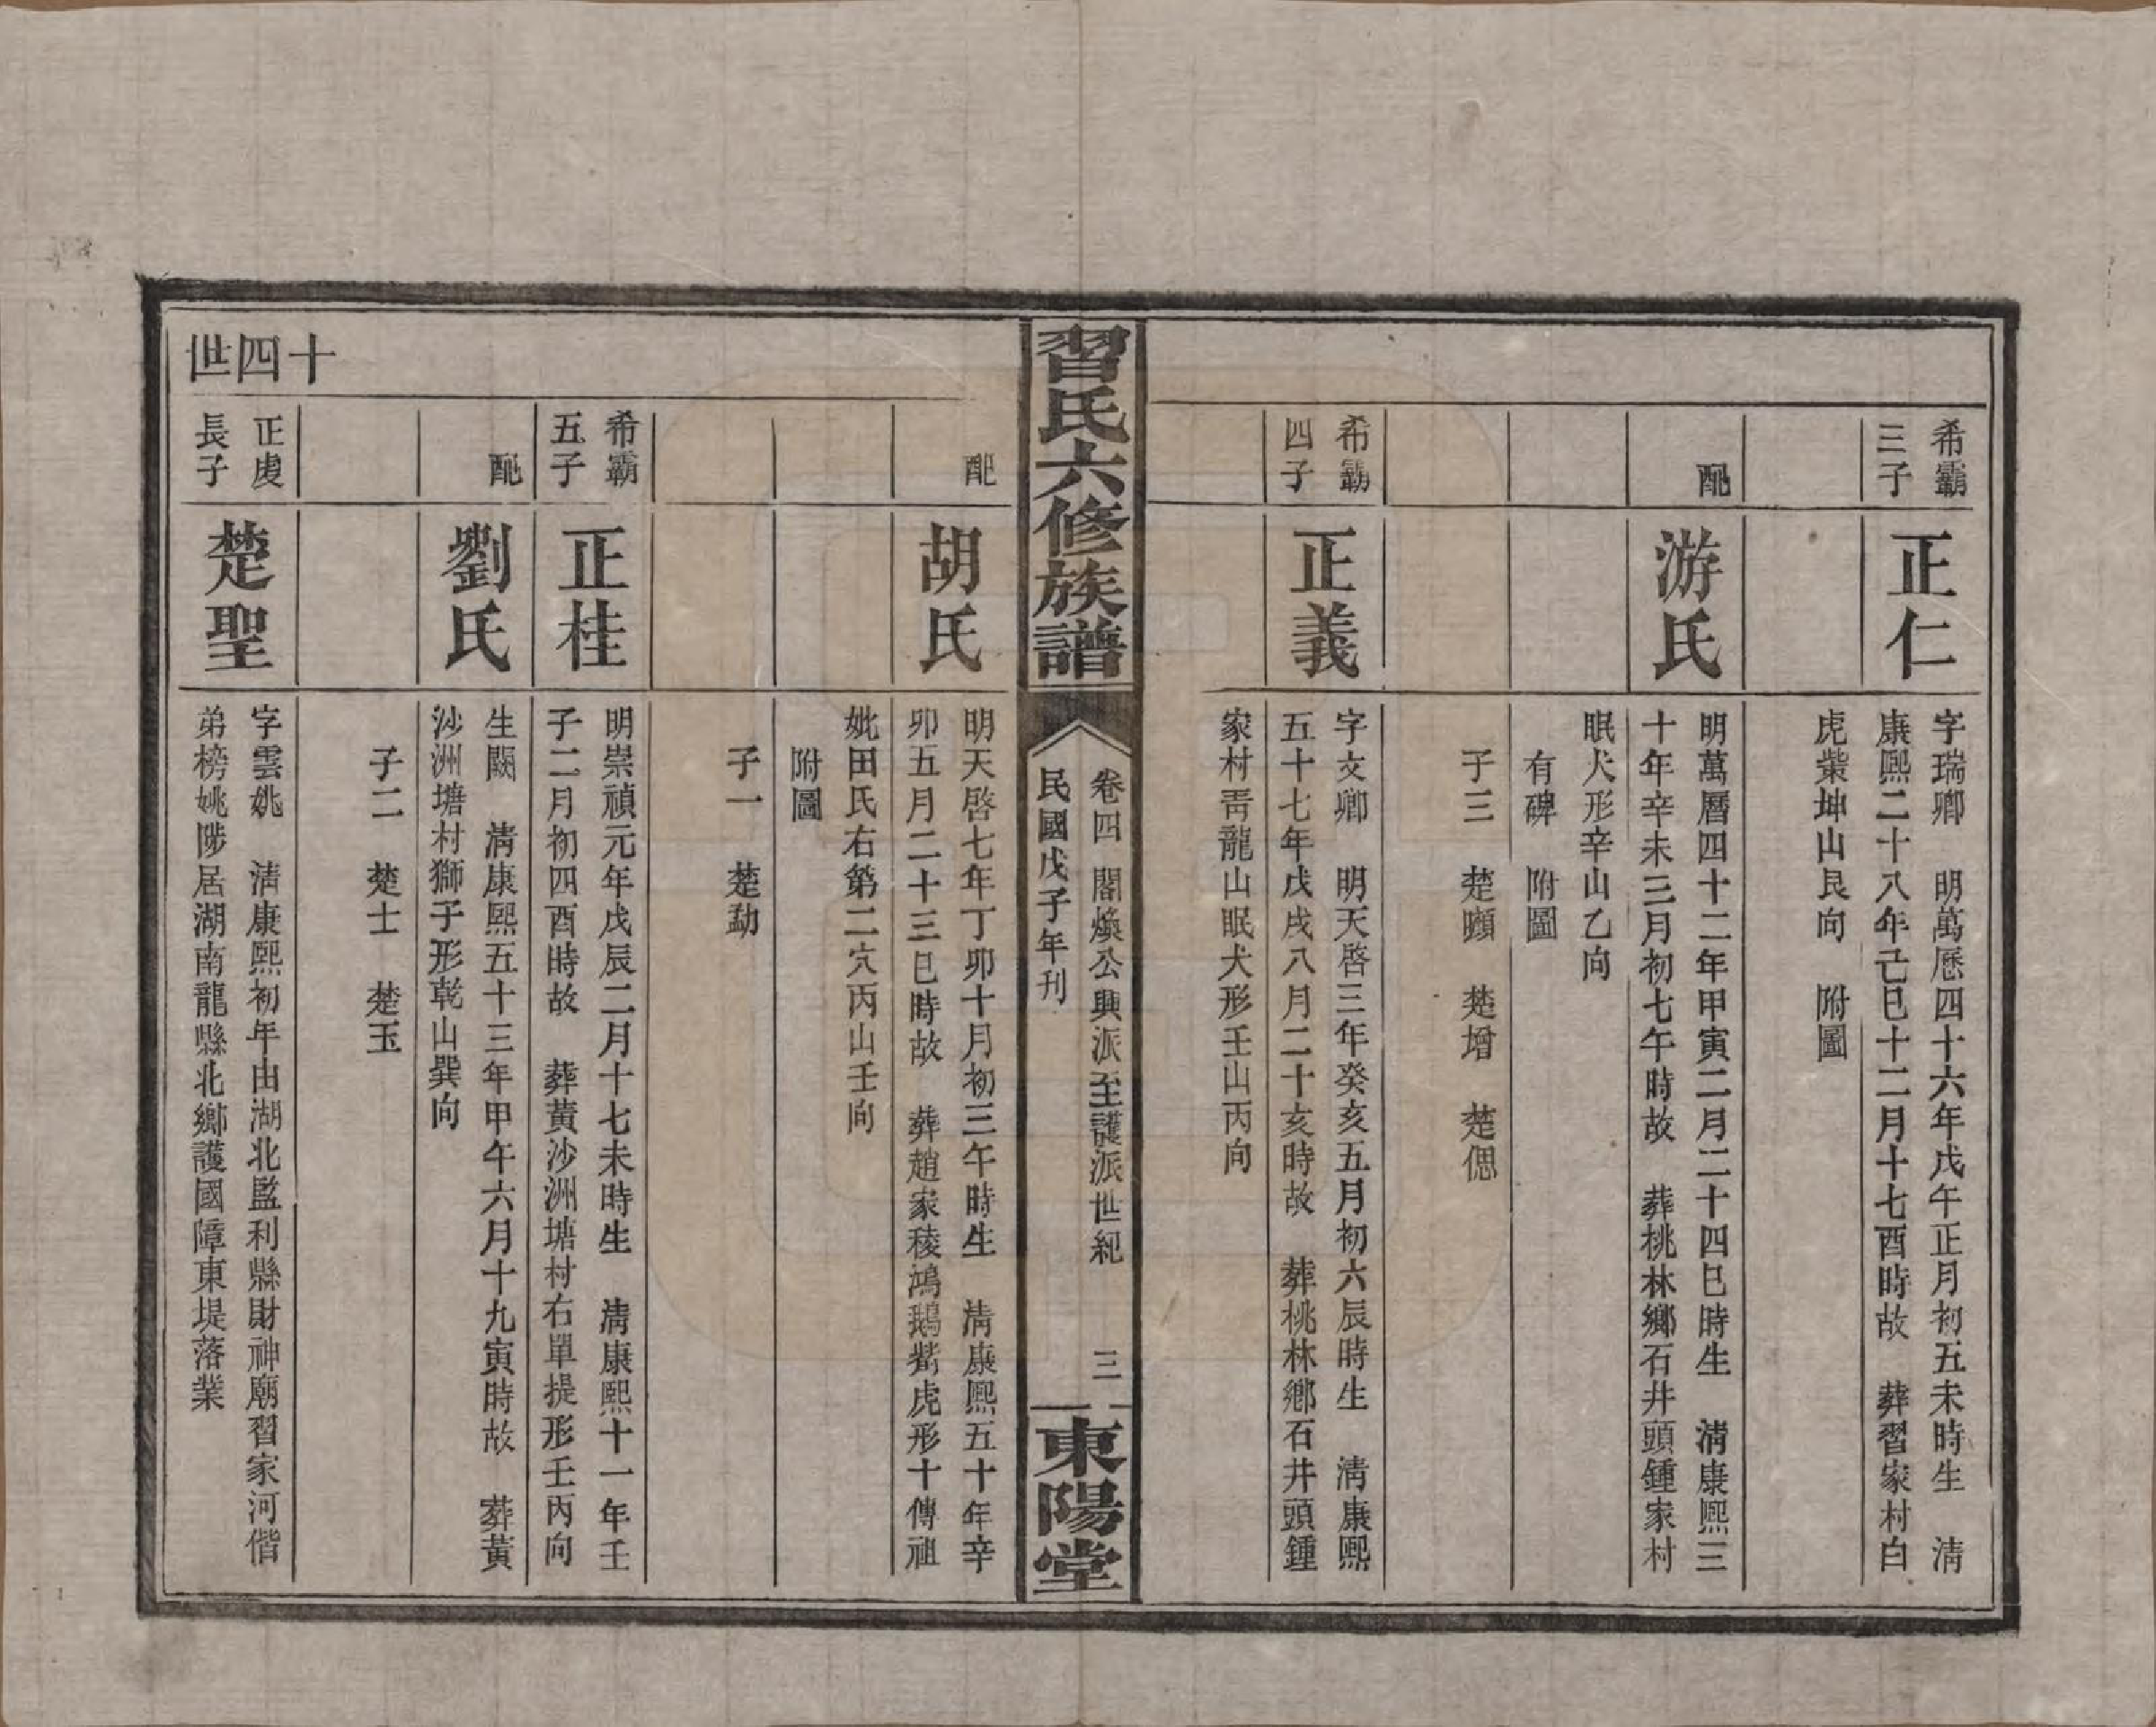 希霸
三子
正仁
字瑞卿　明萬歷四十六年戊午正月初五未時生　清
康熙二十八年己巳十二月十七酉時故　葬習家村白
虎棠坤山艮向　附圖
配
游氏
明萬曆四十二年甲寅二月二十四巳時生　清康熙三
十年辛未三月初七午時故　葬桃林鄉石井頭鍾家村
眠犬形辛山乙向
有碑　附圖
子三　楚頤　楚增　楚偲
希霸
四子
正義
字文卿　明天啓三年癸亥五月初六辰時生　清康熙
五十七年戊戌八月二十亥時故　葬桃林鄉石井頭鍾
家村青龍山眠犬形壬山丙向
習氏六修族譜
卷四　閣煥公興派至護派世紀　三
民國戊子年刊
東陽堂
配
胡氏
明天啓七年丁卯十月初三午時生　清康熙五十年辛
卯五月二十三巳時故　葬趙家稜鴻鵝嘴虎形十傳祖
妣田氏右第二穴丙山壬向
附圖
子一　楚勐
希霸
五子
正桂
明崇禎元年戊辰二月十七未時生　清康熙十一年壬
子二月初四酉時故　葬黃沙洲塘村右單提形壬丙向
配
劉氏
生闕　清康熙五十三年甲午六月十九寅時故　葬黃
沙洲塘村獅子形乾山巽向
子二　楚士　楚玉
十四世
正虔
長子
楚聖
字雲姚　清康熙初年由湖北監利縣財神廟習家河偕
弟榜姚陟居湖南龍縣北鄉護國障東堤落業